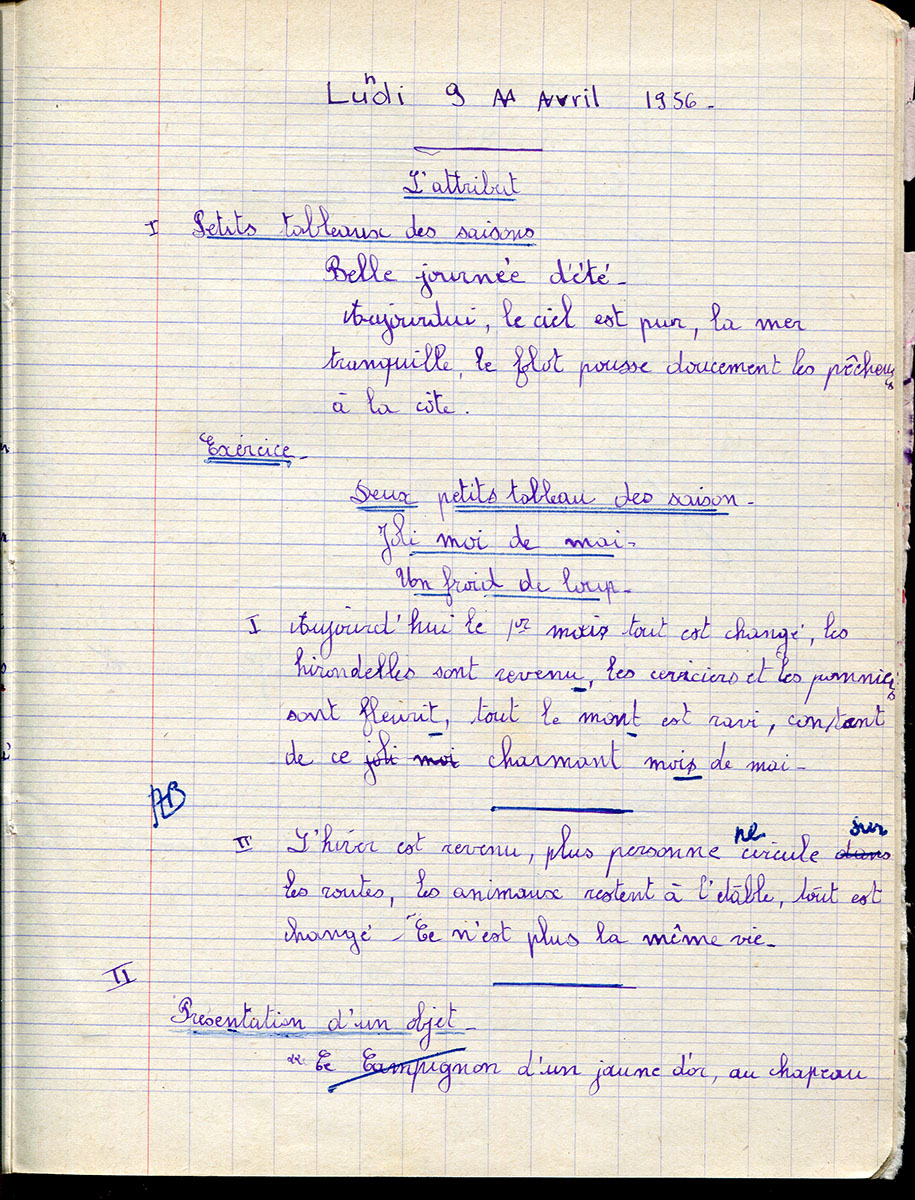 Lundi 9 Avril 1956.
L'attribut
I Petits tableaux des saisons
Belle journée d'été.
Aujourdui, le ciel est pur, la mer
tranquille, le flot pousse doucement les pêcheurs
à la côte.
Exercice.
Deux petits tableau des saison.
Joli moi de mai.
Un froid de loup.
I Aujourd'hui le 1er mois tout est changé, les
hirondelles sont revenu, les cericiers et les pommiers
sont fleurit, tout le mont est ravi, content
de ce joli moi charmant mois de mai.
AB
II L'hiver est revenu, plus personne ne circule dans sur
les routes, les animaux restent à l'etâble, tout est
changé. Ce n'est plus la même vie.
II
Présentation d'un objet.
" Ce Campignon d'un jaune d'or, au chapeau